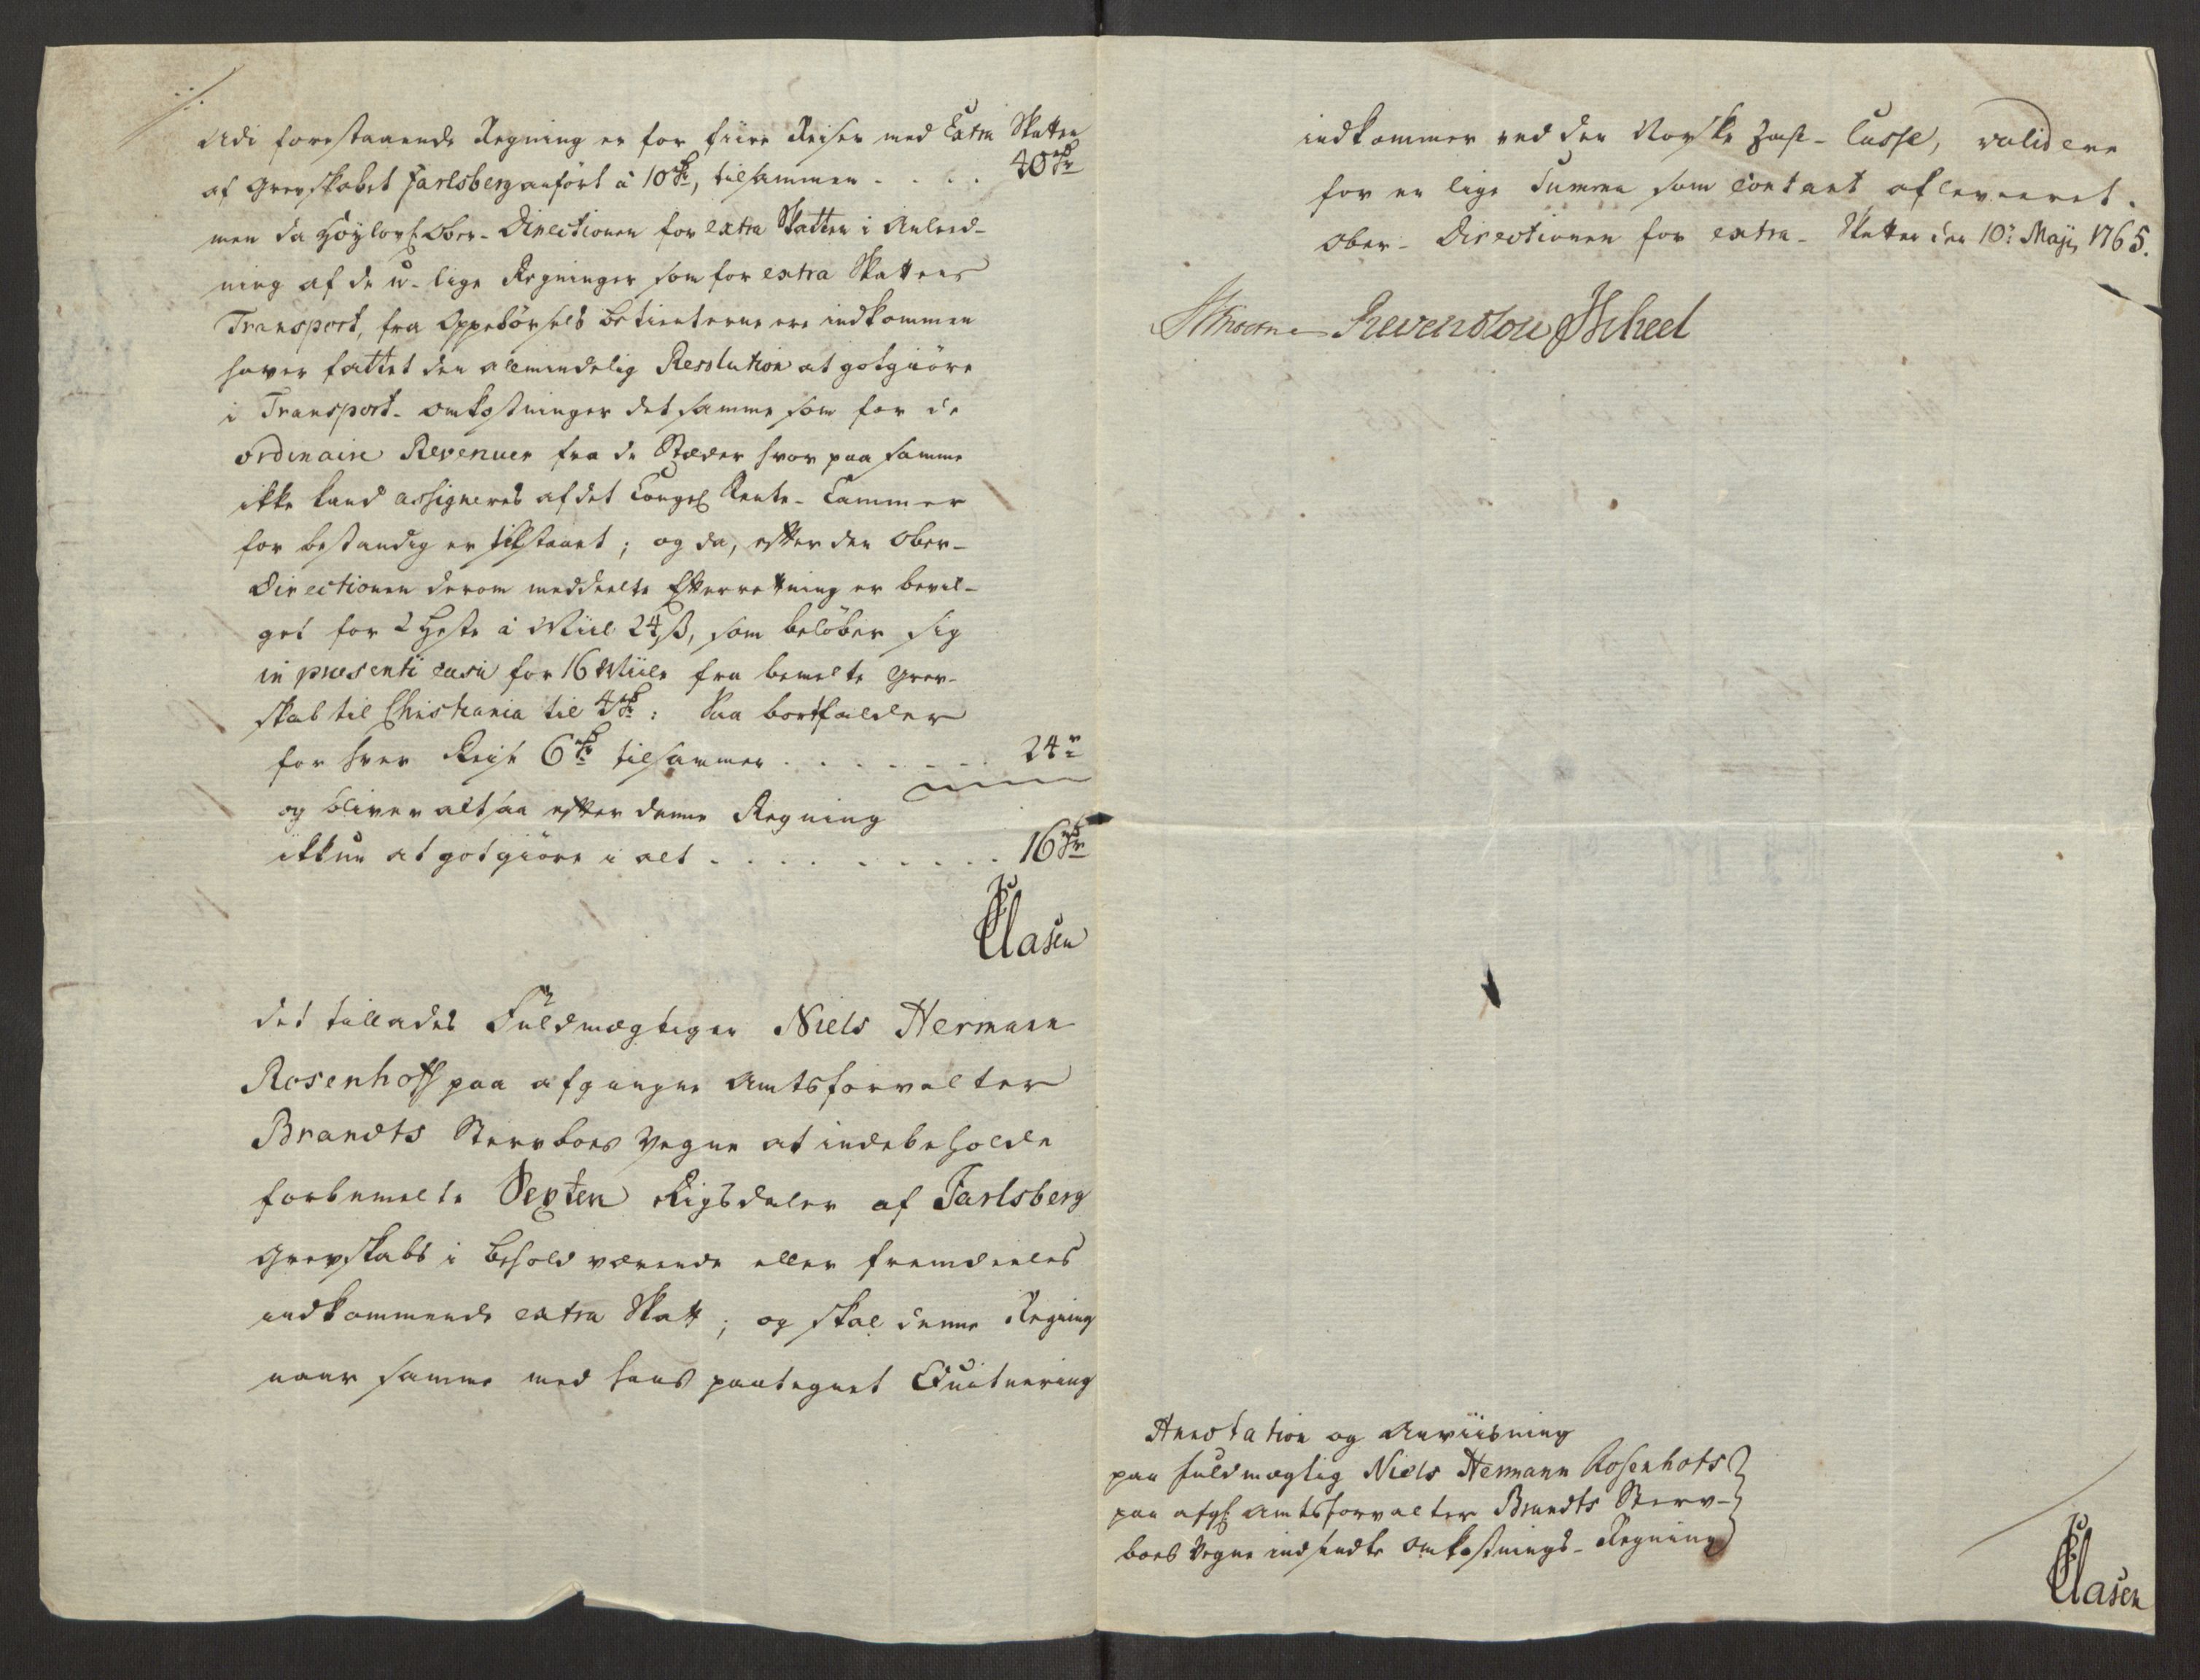 Udi forestaaende Regning er for fiire Reiser med Extra Skatten
af Grevskabet Jarlsberg anført à 10 rdr, tilsammen . . . . 40 rdr
men da Høylovl: Ober-Directionen for extra Skatten i Anleed-
ning af de u-lige Regninger som for extra Skattens
Transport, fra Oppebørsels betienterne ere indkommen
haver fattet den allmindelig Resolution at gotgiøre
i Transport-omkostninger det samme som for de
ordinaire Revenuer fra de Stæder hvor paa samme
ikke kand assigneres af det Kongel Rente-Cammer
for bestandig er tilstaaet; og da, efter den Ober-
Directionen derom meddeelte Efterretning er bevil-
get for 2 Heste à Miil 24 ß, som beløber sig
in præsenti casu for 16 Miile fra bemelte Grev-
skab til Christiania til 4 rdr: Saa bortfalder
for hver Reise 6 rdr tilsammen . . . . . . . 24 "
og bliver altsaa efter denne Regning
ikkun at gotgiøre i alt . . . . . . . . . . 16 rdr
Clasen
Det tillades Fuldmægtigen Niels Hermann
Rosenhoff paa afgangne Amtsforvalter
Brandts Sterboes Vegne at indebeholde
forbemelte Sexten Rigsdaler af Jarlsberg
Grevskabs i behold værende eller fremdeeles
indkommende extra Skatt; og skal denne Regning
naar samme med hans paategnet Quitering
indkommer ved den Norske Zahl-Casse, validere
for en lige Summa som contant afleveeret.
Ober-Directionen for extra-Skatten den 10: Maji 1765.
Reventlou JScheel
Annotation og Anviisning
paa fuldmægtig Niels Hermann Rosenhofs
paa afg: Amtsforvalter Brandts Sterv-
boes Vegne indsendte Omkostnings-Regning
Clasen